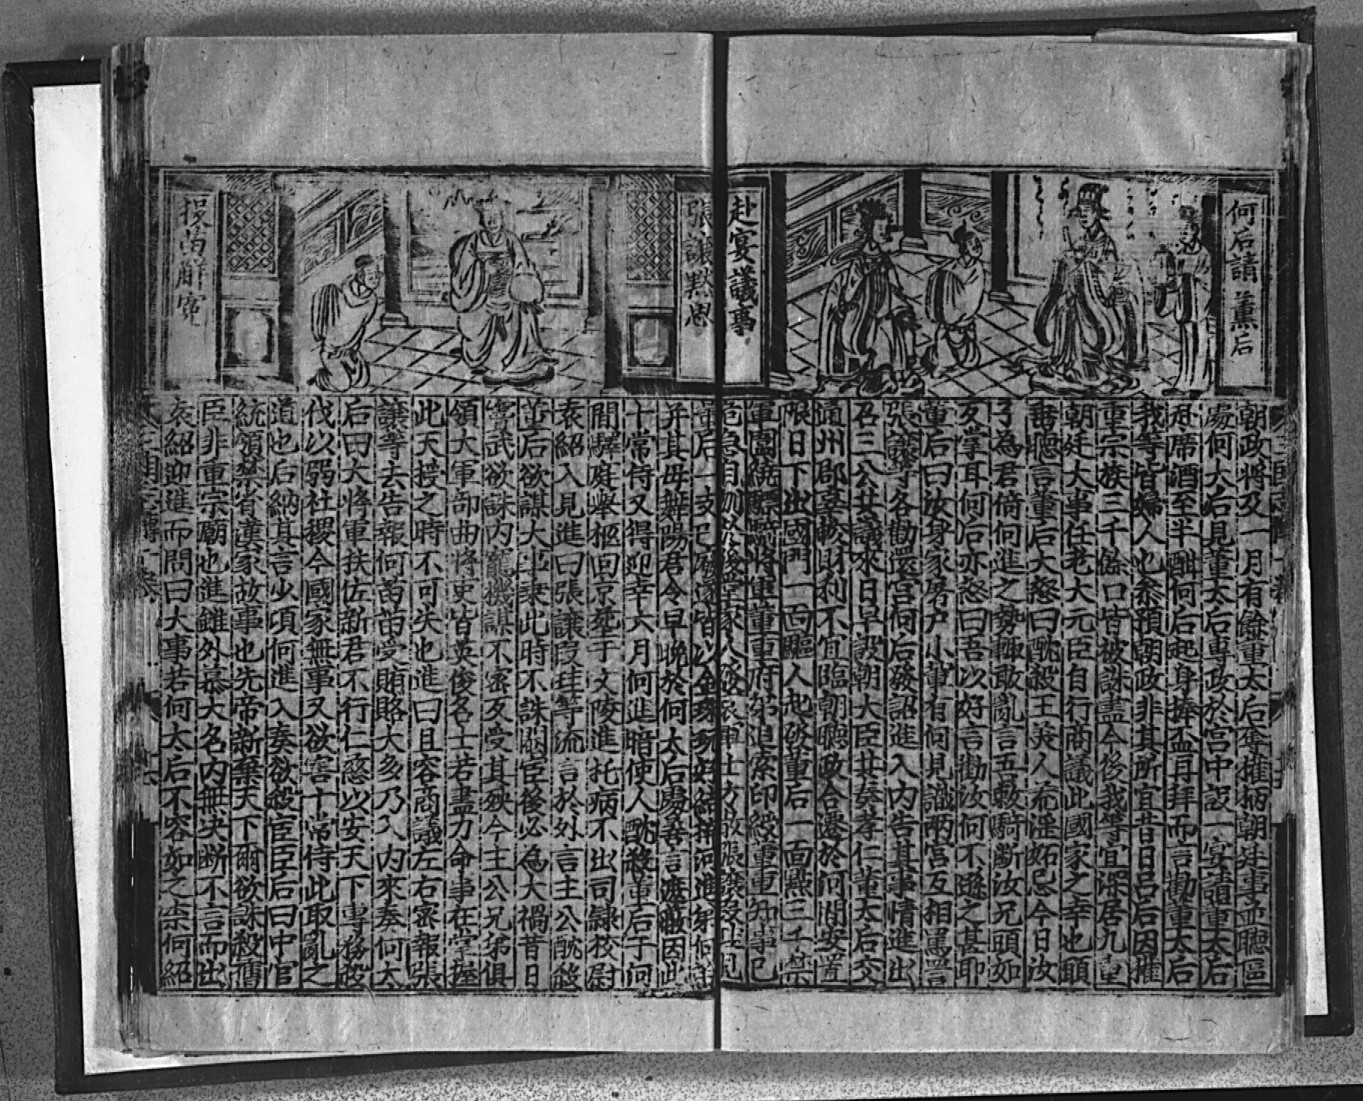 何后請董后
赴宴議事
朝政將及一月有餘董太后奪權柄朝廷事而聽區
處何太后見董太后專政於宮中設一宴請董太后
赴席酒至半酣何后起身捧盃再拜而言勸董太后
我等皆婦人也叅預朝政非其所宜昔日呂后因權
重宗族三千餘口皆被誅盡今後我等宜深居九重
朝廷大事任老大元臣自行商議此國家之幸也願
畨聽言董后大怒曰酖殺王美人充滛妬忌今日汝
子為君倚何進之勢輙敢亂言吾敕驃騎斷汝兄頭如
反掌耳何后亦怒曰吾以好言勸汝何不遜之甚耶
董后曰汝身家屠戶小輩有何見識兩宮互相罵詈
張讓等各勸還宮何后發詔進入內告其事情進出
召三公共議來日早設朝大臣共奏孝仁董太后交
通州郡辜較財利不宜臨朝聽政合遷於河間安置
限日下出國門一面驅人起發董后一面點三千禁
軍圍繞驃騎將軍董重府第追索印綬董重知事已
危急自刎於後堂家人發哀軍士方散張讓叚珪見
董后一支已廢遂皆以金珠玩好結搆何進弟何苗
并其母舞陽君令早晚於何太后處善言遮蔽因此
十常侍又得近幸六月何進暗使人酖殺董后于河
間驛庭舉柩回京葬于文陵進托病不出司隸校尉
袁紹入見進曰張讓叚珪等流言於外言主公酖殺
董后欲謀大事乘此時不誅閹宦後必為大禍昔日
竇武欲誅內寵機謀不密反受其殃今主公兄弟俱
領大軍部曲將吏皆英俊名士若盡力命事在掌握
此天授之時不可失也進曰且容商議左右密報張
讓等去告報何苗苗受賄賂大多乃入內來奏何太
后曰大將軍扶佐新君不行仁慈以安天下專務殺
伐以弱社稷今國家無事又欲害十常侍此取亂之
道也后納其言少頃何進入奏欲殺宦臣后曰中官
統領禁省漢家故事也先帝新棄天下爾欲誅殺舊
臣非重宗廟也進雖外慕大名內無决断不言而出
袁紹迎進而問曰大事若何太后不容如之奈何紹
張讓默思